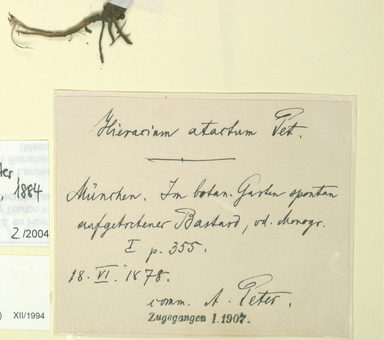 Hieracium atactum Pet.
München. Im botan. Garten spontan
aufgetretener Bastard, vd. Monogr.
I p. 355.
18. VI. 1878.
comm. A. Peter.
Zugegangen 1.1907.
1884
2/2004
XII/1994